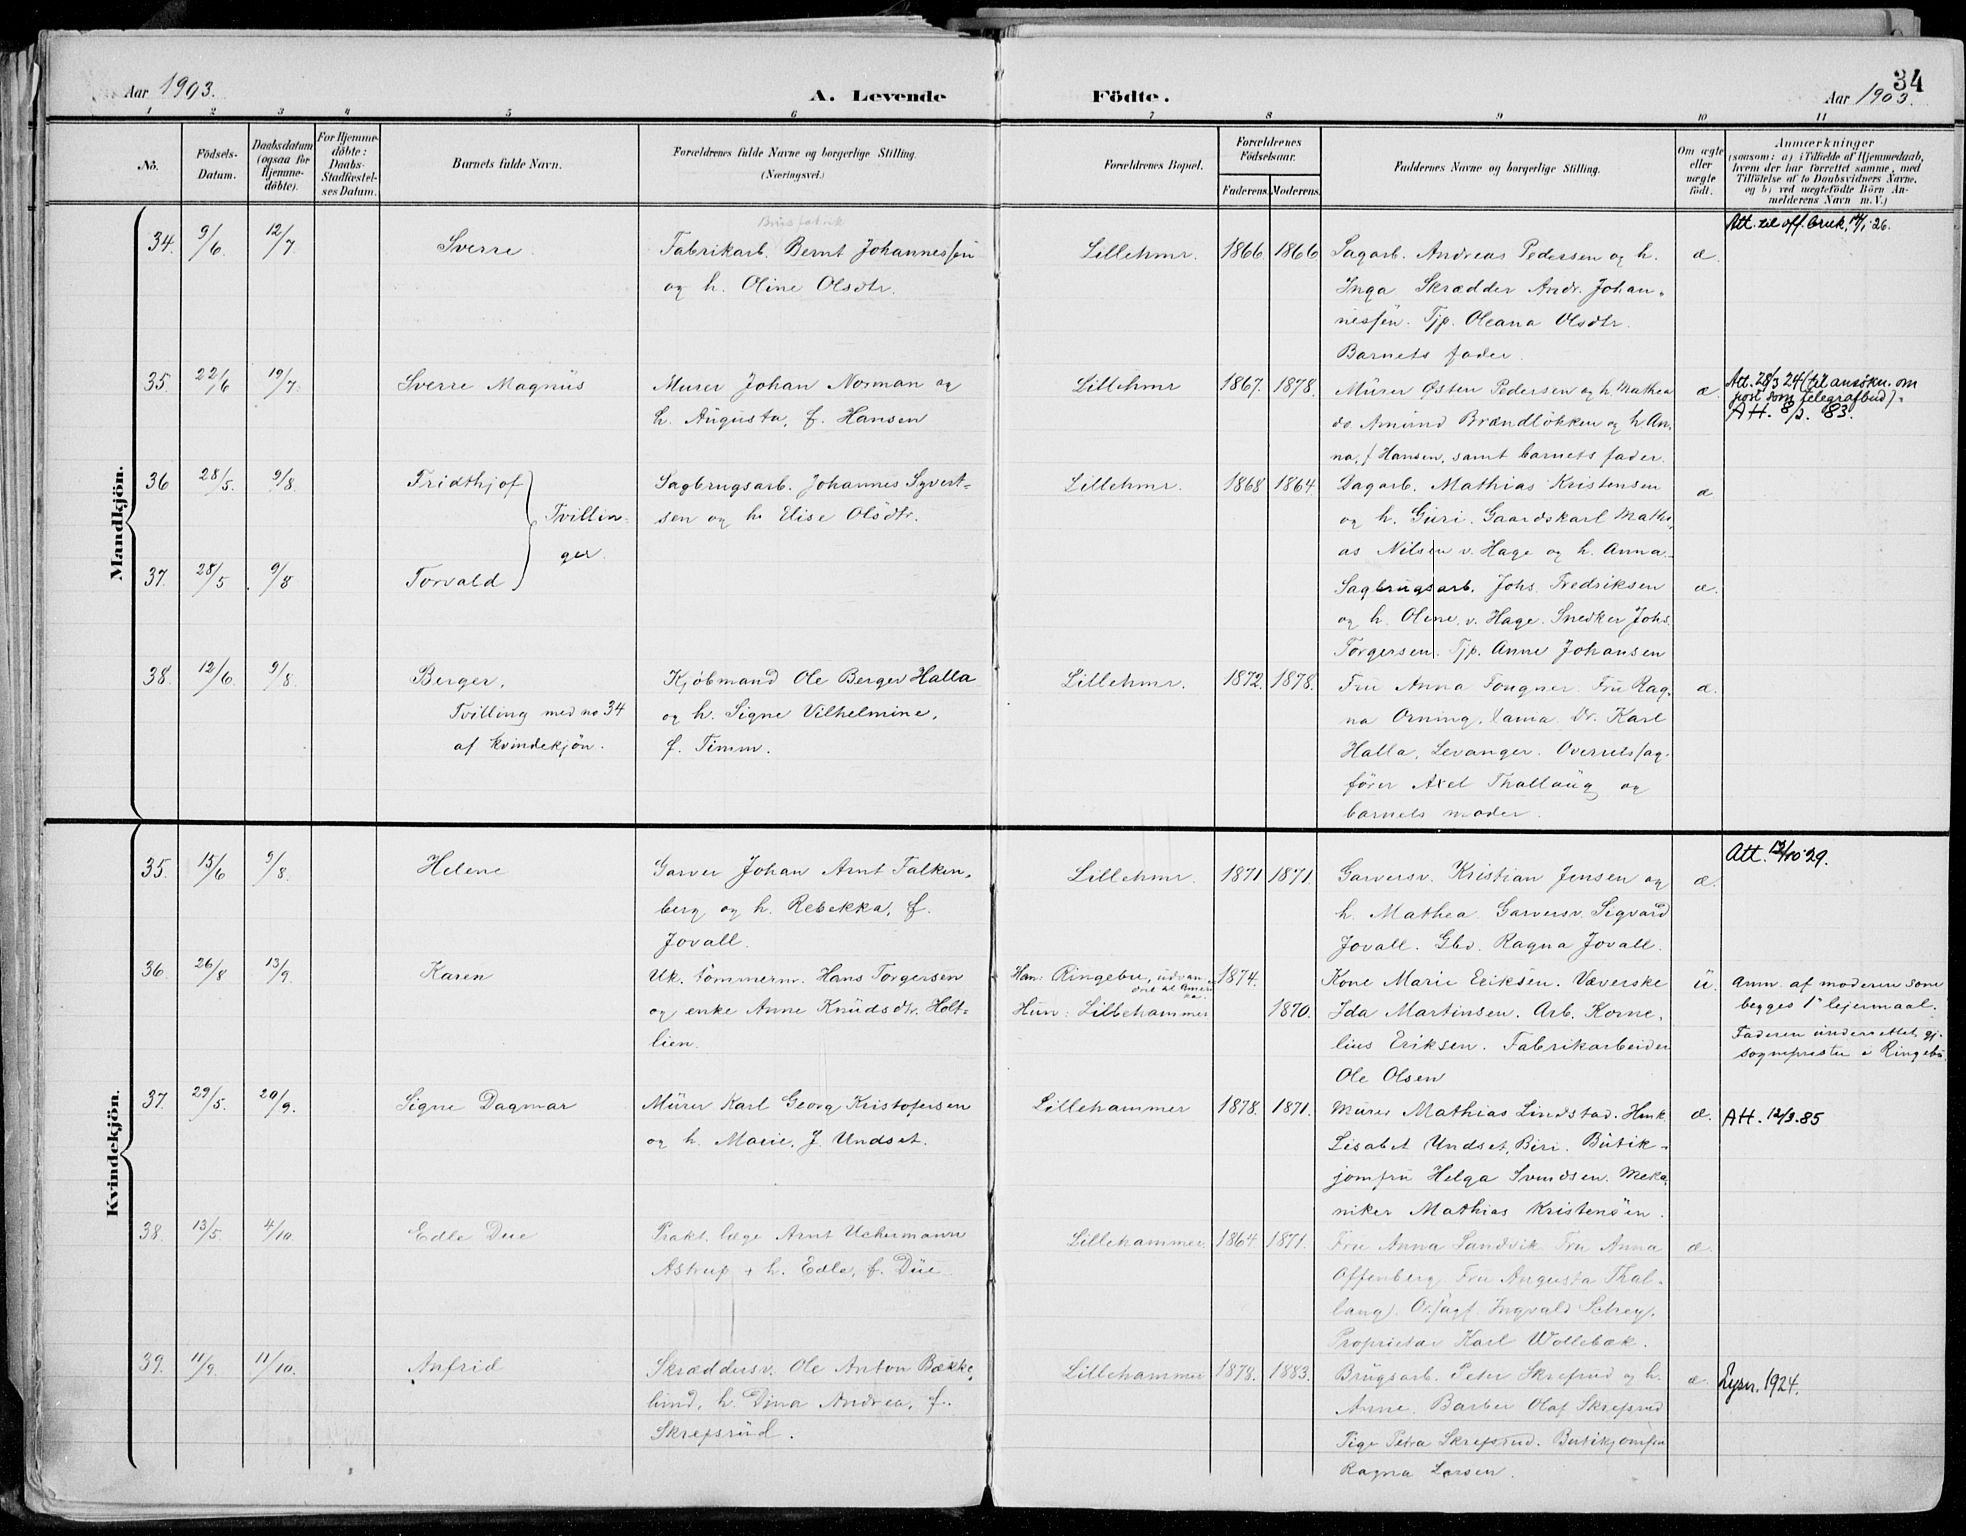 34
Aar 1903.
A. Levende Födte.
Aar 1903.
1 2 3 4 5 6 7 8 9 10 11
No.
Födsels-Datum.
Daabsdatum (ogsaa for Hjemme-döbte).
For Hjemme-döbte: Daabs-Stadfæstel-ses Datum.
Barnets fulde Navn.
Forældrenes fulde Navne og borgerlige Stilling.
(Næringsvei.)
Forældrenes Bopæl.
Forældrenes Födselsaar.
Faderens. Moderens.
Faddernes Navne og borgerlige Stilling.
Om ægte eller uægte födt.
Anmærkninger
(saasom: a) i Tilfælde af Hjemmedaab,
hvem der har forrettet samme, med
Tilföielse af to Daabsvidners Navne,
og b) ved uægtefödte Börn An-
melderens Navn m. V.)
Mandkjön.
Brusfabrik
34. 9/6 12/7 Sverre. Fabrikarb. Bernt Johannessen Lillehmr. 1866. 1866 Sagarb. Andreas Pedersen og h. æ. Att. til off. bruk, 14/1 26.
og h. Oline Olsdtr. Inga Skrædder Andr. Johan-
nessen. Tjp. Oleana Olsdtr.
Barnets fader.
35. 22/6 19/7 Sverre Magnus Murer Johan Norman og Lillehmr 1867. 1878. Murer Østen Pedersen og h. Mathea æ. Att. 28/3 24 (til ansøkn. om
h. Augusta, f. Hansen do. Amund Brændløkken og h An- post som telegrafbud).
na, f Hansen, samt barnets fader. Att. 8/2. 83.
36 28/5. 9/8. Fridthjof Sagbrugsarb. Johannes Syvert- Lillehmr. 1868 1864. Dagarb. Mathias Kristensen æ
Tvillin- sen og h. Elise Olsdtr. og h. Guri. Gaardskarl Mathi-
ger. as Nilsen v. Hage og h. Anna.
37. 28/5 9/8 Torvald Sagbrugsarb. Johs. Fredriksen æ.
og h. Oline, v. Hage. Snedker Johs.
Torgersen. Tjp. Anne Johansen
38. 12/6. 9/8. Berger, Kjøbmand Ole Berger Halla Lillehmr. 1872. 1878. Fru Anna Tougner. Fru Rag- æ.
Tvilling med no 34 og h. Signe Vilhelmine, na Orning, Dr. Karl
af kvindekjøn. f. Timm. Halla, Levanger. Overretssag-
fører Axel Thallaug og
barnets moder.
Kvindekjön.
35. 15/6 9/8. Helene Garver Johan Arnt Falken- Lillehmr. 1871 1871. Garversv. Kristian Jensen og æ. Att. 12/10 29.
berg og h. Rebekka, f. h. Mathea. Garversv. Sigvard
Jovall. Jovall. Gbv. Ragna Jovall.
36. 26/8 13/9. Karen Uk. tømmerm. Hans Torgersen Han: Ringebu, udvan- 1874. Kone Marie Eriksen. Væverske u. Anm. af moderen som
dret til Ameri-
ka.
og enke Anne Knudsdtr. Holt- Hun: Lillehammer 1870. Ida Martinsen. Arb. Korne- begges 1ste lejermaal.
lien. lius Eriksen. Fabrikarbeider Faderen underrettet gj.
Ole Olsen sognepresten i Ringebu.
37. 29/5. 20/9. Signe Dagmar Murer Karl Georg Kristofersen Lillehammer 1878. 1871. Murer Mathias Lindstad. Enk. æ. Att. 12/3.85
og h. Marie, f. Undset. Lisabet Undset, Biri. Butik-
jomfru Helga Svendsen. Meka-
niker Mathias Kristensen.
38. 13/5. 4/10. Edle Due Prakt. læge Arnt Uchermann Lillehammer. 1864. 1871. Fru Anna Sandvik Fru Anna æ.
Astrup + h. Edle, f. Due Offenberg. Fru Augusta Thal-
laug. Ovrsagf. Ingvald Schrey.
Proprietær Karl Wollebæk.
39. 11/9. 11/10. Anfrid Skræddersv. Ole Anton Bække- Lillehammer 1878. 1883. Brugsarb. Peter Skrefsrud og h. æ. Lysn. 1924.
lund, h. Dina Andrea, f. Anne. Barber Olaf Skrefsrud
Skrefsrud. Pige Petra Skrefsrud. Butikjomfru
Ragna Larsen.